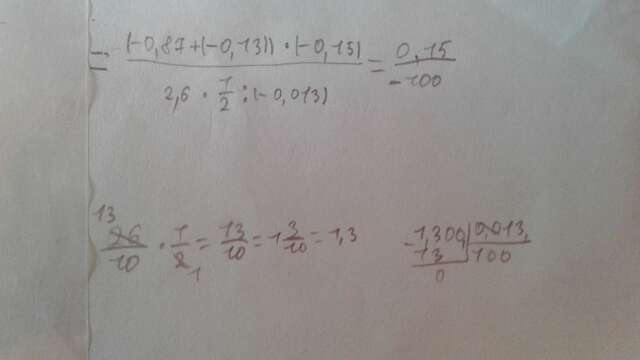 = (-0,87+(-0,13))·(-0,15) / 2,6·1/2:(-0,013) = 0,15 / -100
26/10 · 1/2 = 13/10 = 1 3/10 = 1,3
13
1
-1,300|0,013
13 |100
0